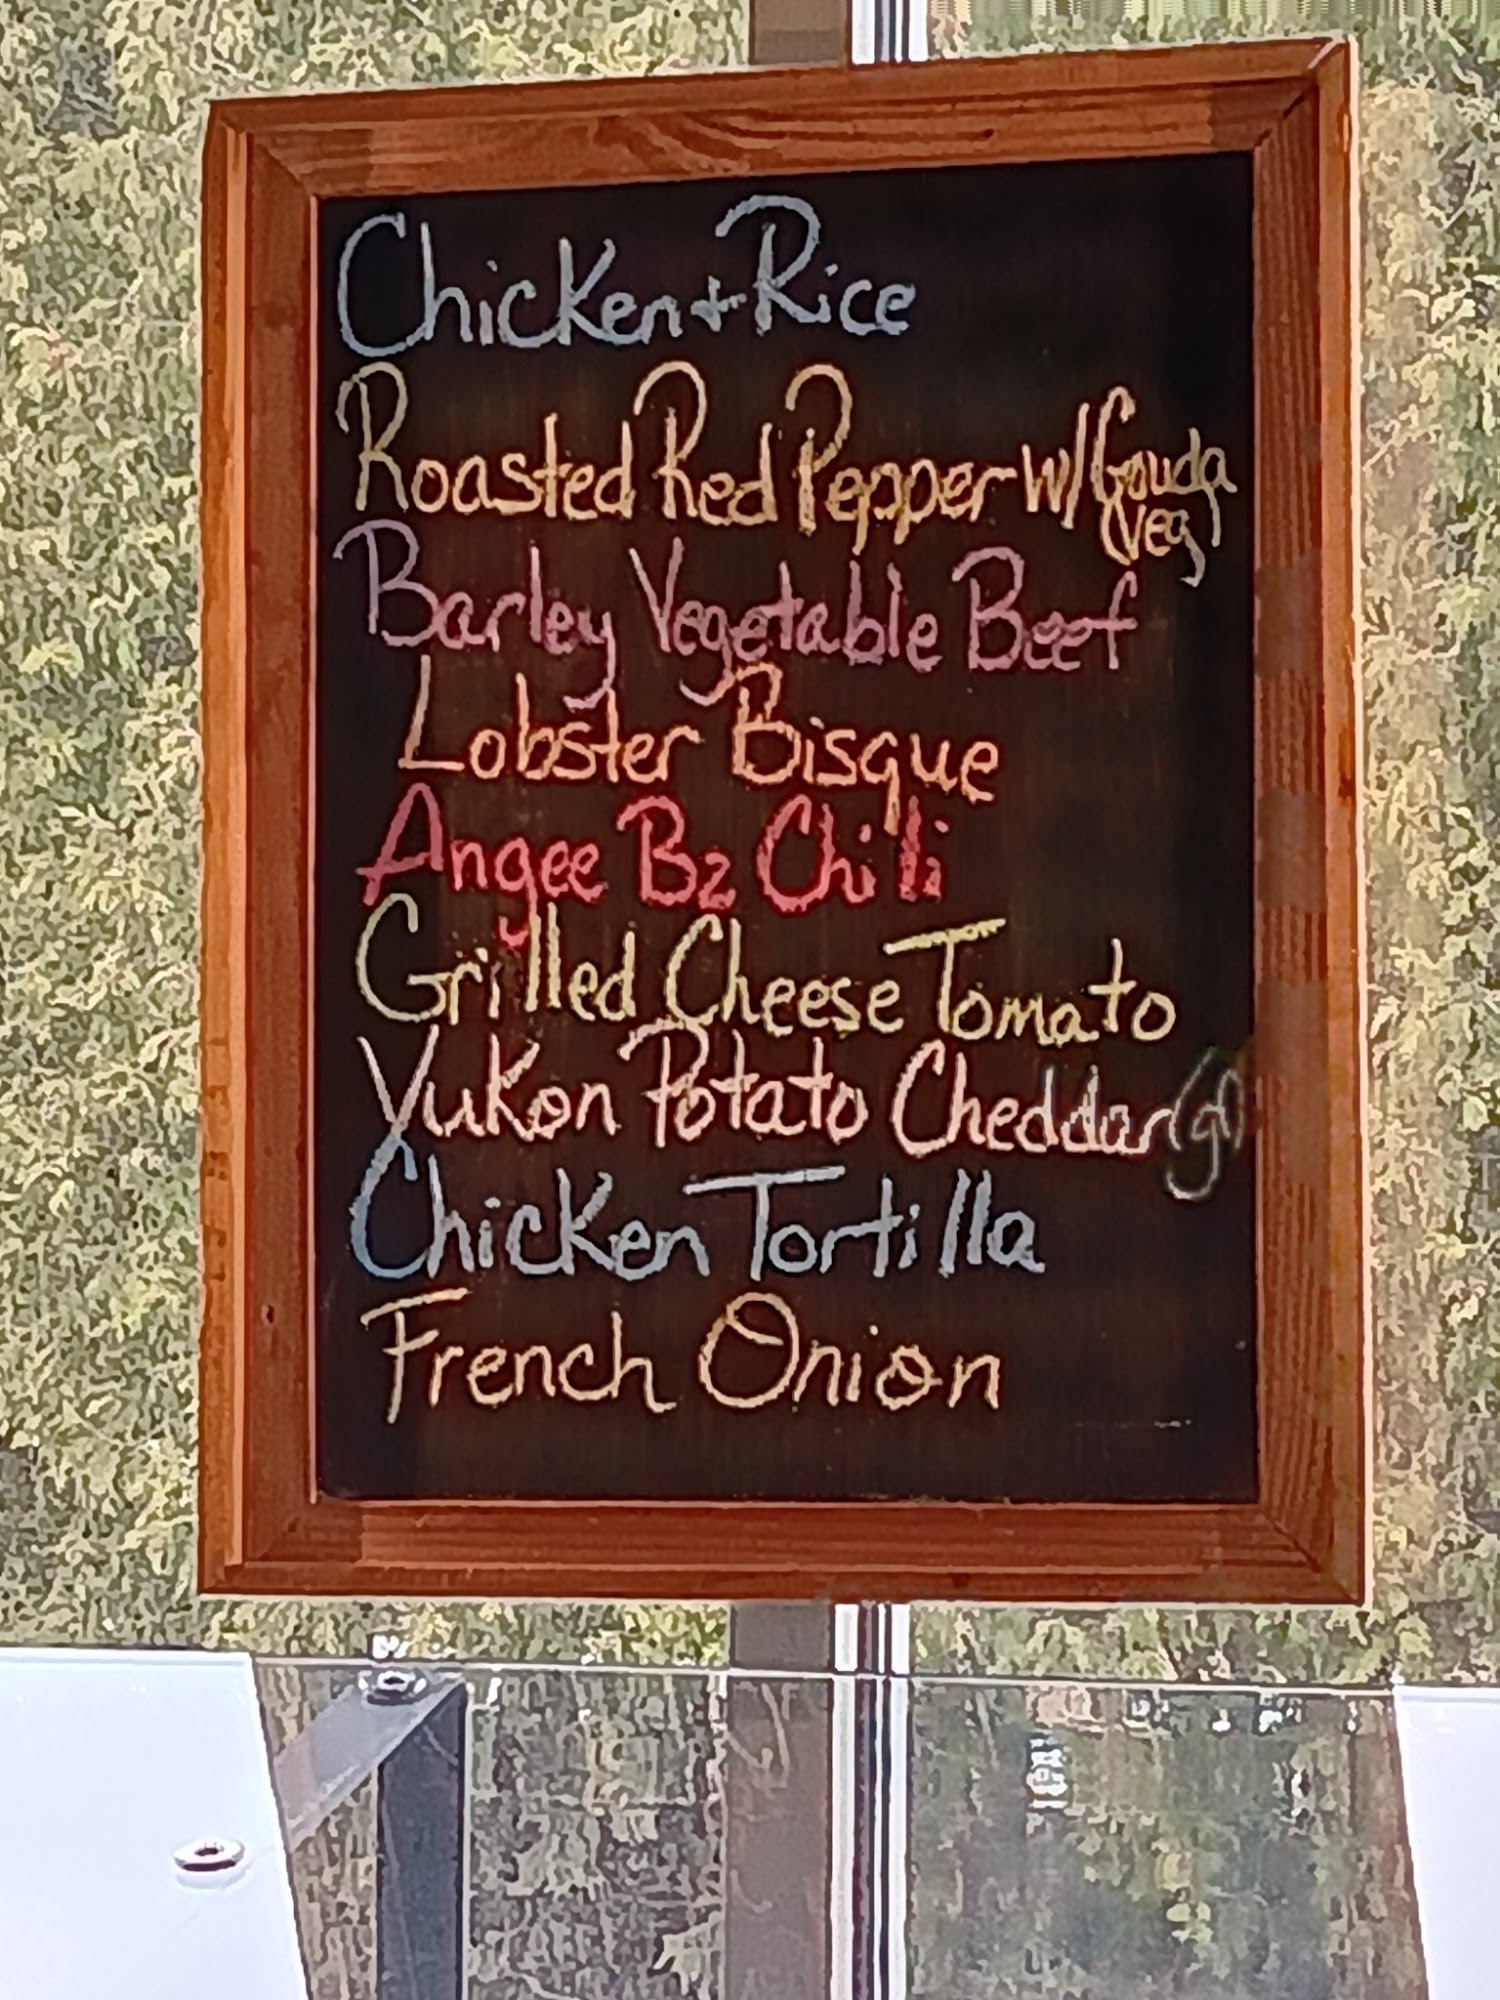 Chicken + Rice
Roasted Red Pepper w/ Gouda
(veg)
Barley Vegetable Beef
Lobster Bisque
Angee Bz Chili
Grilled Cheese Tomato
Yukon Potato Cheddar (gf)
Chicken Tortilla
French Onion